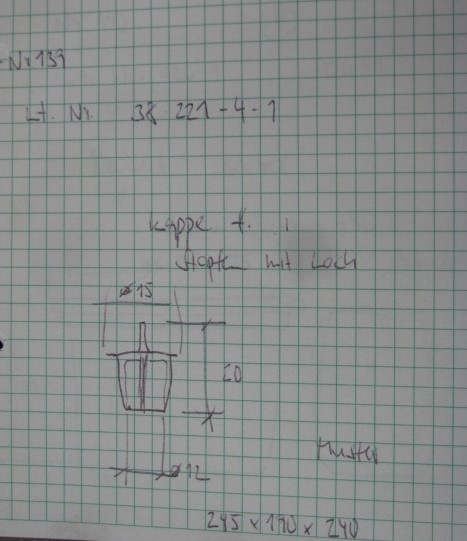 Nr 139
Lt. Nr. 38 221-4-1
Kappe f.
Stopfen mit Loch
ø15
20
ø12
Muster
245 x 190 x 240